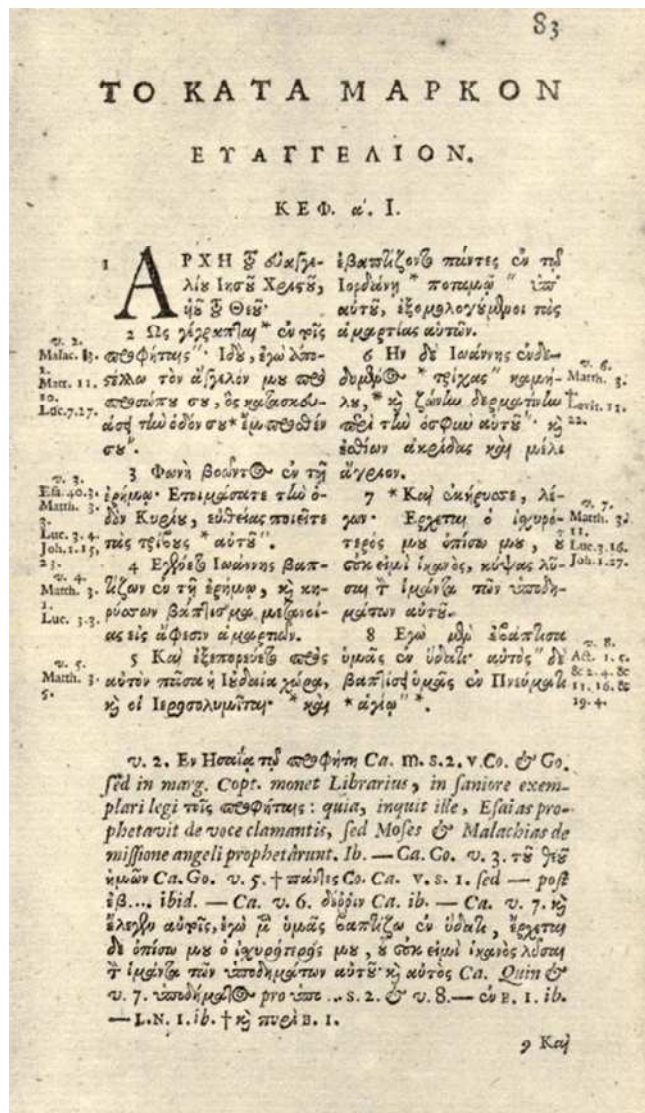 83
ΤΟ ΚΑΤΑ ΜΑΡΚΟΝ
ΕΥΑΓΓΕΛΙΟΝ.
ΚΕΦ. α'. I.
1 ΑΡΧΗ τοῦ εὐαγγε-
λίου Ιησοῦ Χριστοῦ,
υἱοῦ τοῦ Θεοῦ·
2 Ως γέγραπται * ἐν τοῖς
προφήταις"· Ιδοὺ, ἐγὼ ἀπο-
στέλλω τὸν ἄγγελόν μου πρὸ
προσώπου σου, ὃς κατασκευ-
άσει τὴν ὁδόν σου * ἔμπροσθέν
σου".
3 Φωνὴ βοῶντος ἐν τῇ
ἐρήμῳ· Ετοιμάσατε τὴν ὁ-
δὸν Κυρίου, εὐθείας ποιεῖτε
τὰς τρίβους * αὐτοῦ".
4 Εγένετο Ιωάννης βαπ-
τίζων ἐν τῇ ἐρήμῳ, καὶ κη-
ρύσσων βάπτισμα μετανοί-
ας εἰς ἄφεσιν ἁμαρτιῶν.
5 Καὶ ἐξεπορεύετο πρὸς
αὐτὸν πᾶσα ἡ Ιουδαία χώρα,
καὶ οἱ Ιεροσολυμῖται· * καὶ
v. 2.
Malac. 3.
1.
Matt. 11.
10.
Luc. 7. 27.
v. 3.
Esa. 40. 3.
Matth. 3.
3.
Luc. 3. 4.
Joh. 1. 15,
23.
v. 4.
Matth. 3.
1.
Luc. 3. 3.
v. 5.
Matth. 3.
5.
ἐβαπτίζοντο πάντες ἐν τῷ
Ιορδάνῃ * ποταμῷ " ὑπ'
αὐτοῦ, ἐξομολογούμενοι τὰς
ἁμαρτίας αὐτῶν.
6 Ην δὲ Ιωάννης ἐνδε-
δυμένος * τρίχας" καμή-
λου, * καὶ ζώνην δερματίνην
περὶ τὴν ὀσφῦν αὐτοῦ"· καὶ
ἐσθίων ἀκρίδας καὶ μέλι
ἄγριον.
7 * Καὶ ἐκήρυσσε, λέ-
γων· Ερχεται ὁ ἰσχυρό-
τερός μου ὀπίσω μου, οὗ
οὐκ εἰμὶ ἱκανὸς, κύψας λῦ-
σαι τὸν ἱμάντα τῶν ὑποδη-
μάτων αὐτοῦ.
8 Εγὼ μὲν ἐβάπτισα
ὑμᾶς ἐν ὕδατι· αὐτὸς" δὲ
βαπτίσει ὑμᾶς ἐν Πνεύματι
* ἁγίῳ" *.
v. 6.
Matth. 3.
Levit. 11.
22.
v. 7.
Matth. 3.
11.
Luc. 3. 16.
Joh. 1. 27.
v. 8.
Act. 1. 5.
& 2. 4. &
11. 16. &
19. 4.
v. 2. Εν Ησαΐᾳ τῷ προφήτῃ Ca. m. s. 2. v. Co. & Go.
sed in marg. Copt. monet Librarius, in saniore exem-
plari legi τοῖς προφήταις: quia, inquit ille, Esaias pro-
phetavit de voce clamantis, sed Moses & Malachias de
missione angeli prophetârunt. Ib. — Ca. Co. v. 3. τοῦ θεοῦ
ἡμῶν Ca. Go. v. 5. † πάντες Co. Ca. v. s. 1. sed — post
ἐβ... ibid. — Ca. v. 6. δέρριν Ca. ib. — Ca. v. 7. καὶ
ἔλεγεν αὐτοῖς, ἐγὼ μὲν ὑμᾶς βαπτίζω ἐν ὕδατι, ἔρχεται
δὲ ὀπίσω μου ὁ ἰσχυρότερός μου, οὗ οὐκ εἰμὶ ἱκανὸς λῦσαι
τὸν ἱμάντα τῶν ὑποδημάτων αὐτοῦ· καὶ αὐτὸς Ca. Quin &
v. 7. ὑποδήματος pro ὑπο... s. 2. & v. 8. — ἐν B. 1. ib.
— L. N. 1. ib. † καὶ πυρὶ B. 1.
9 Καὶ